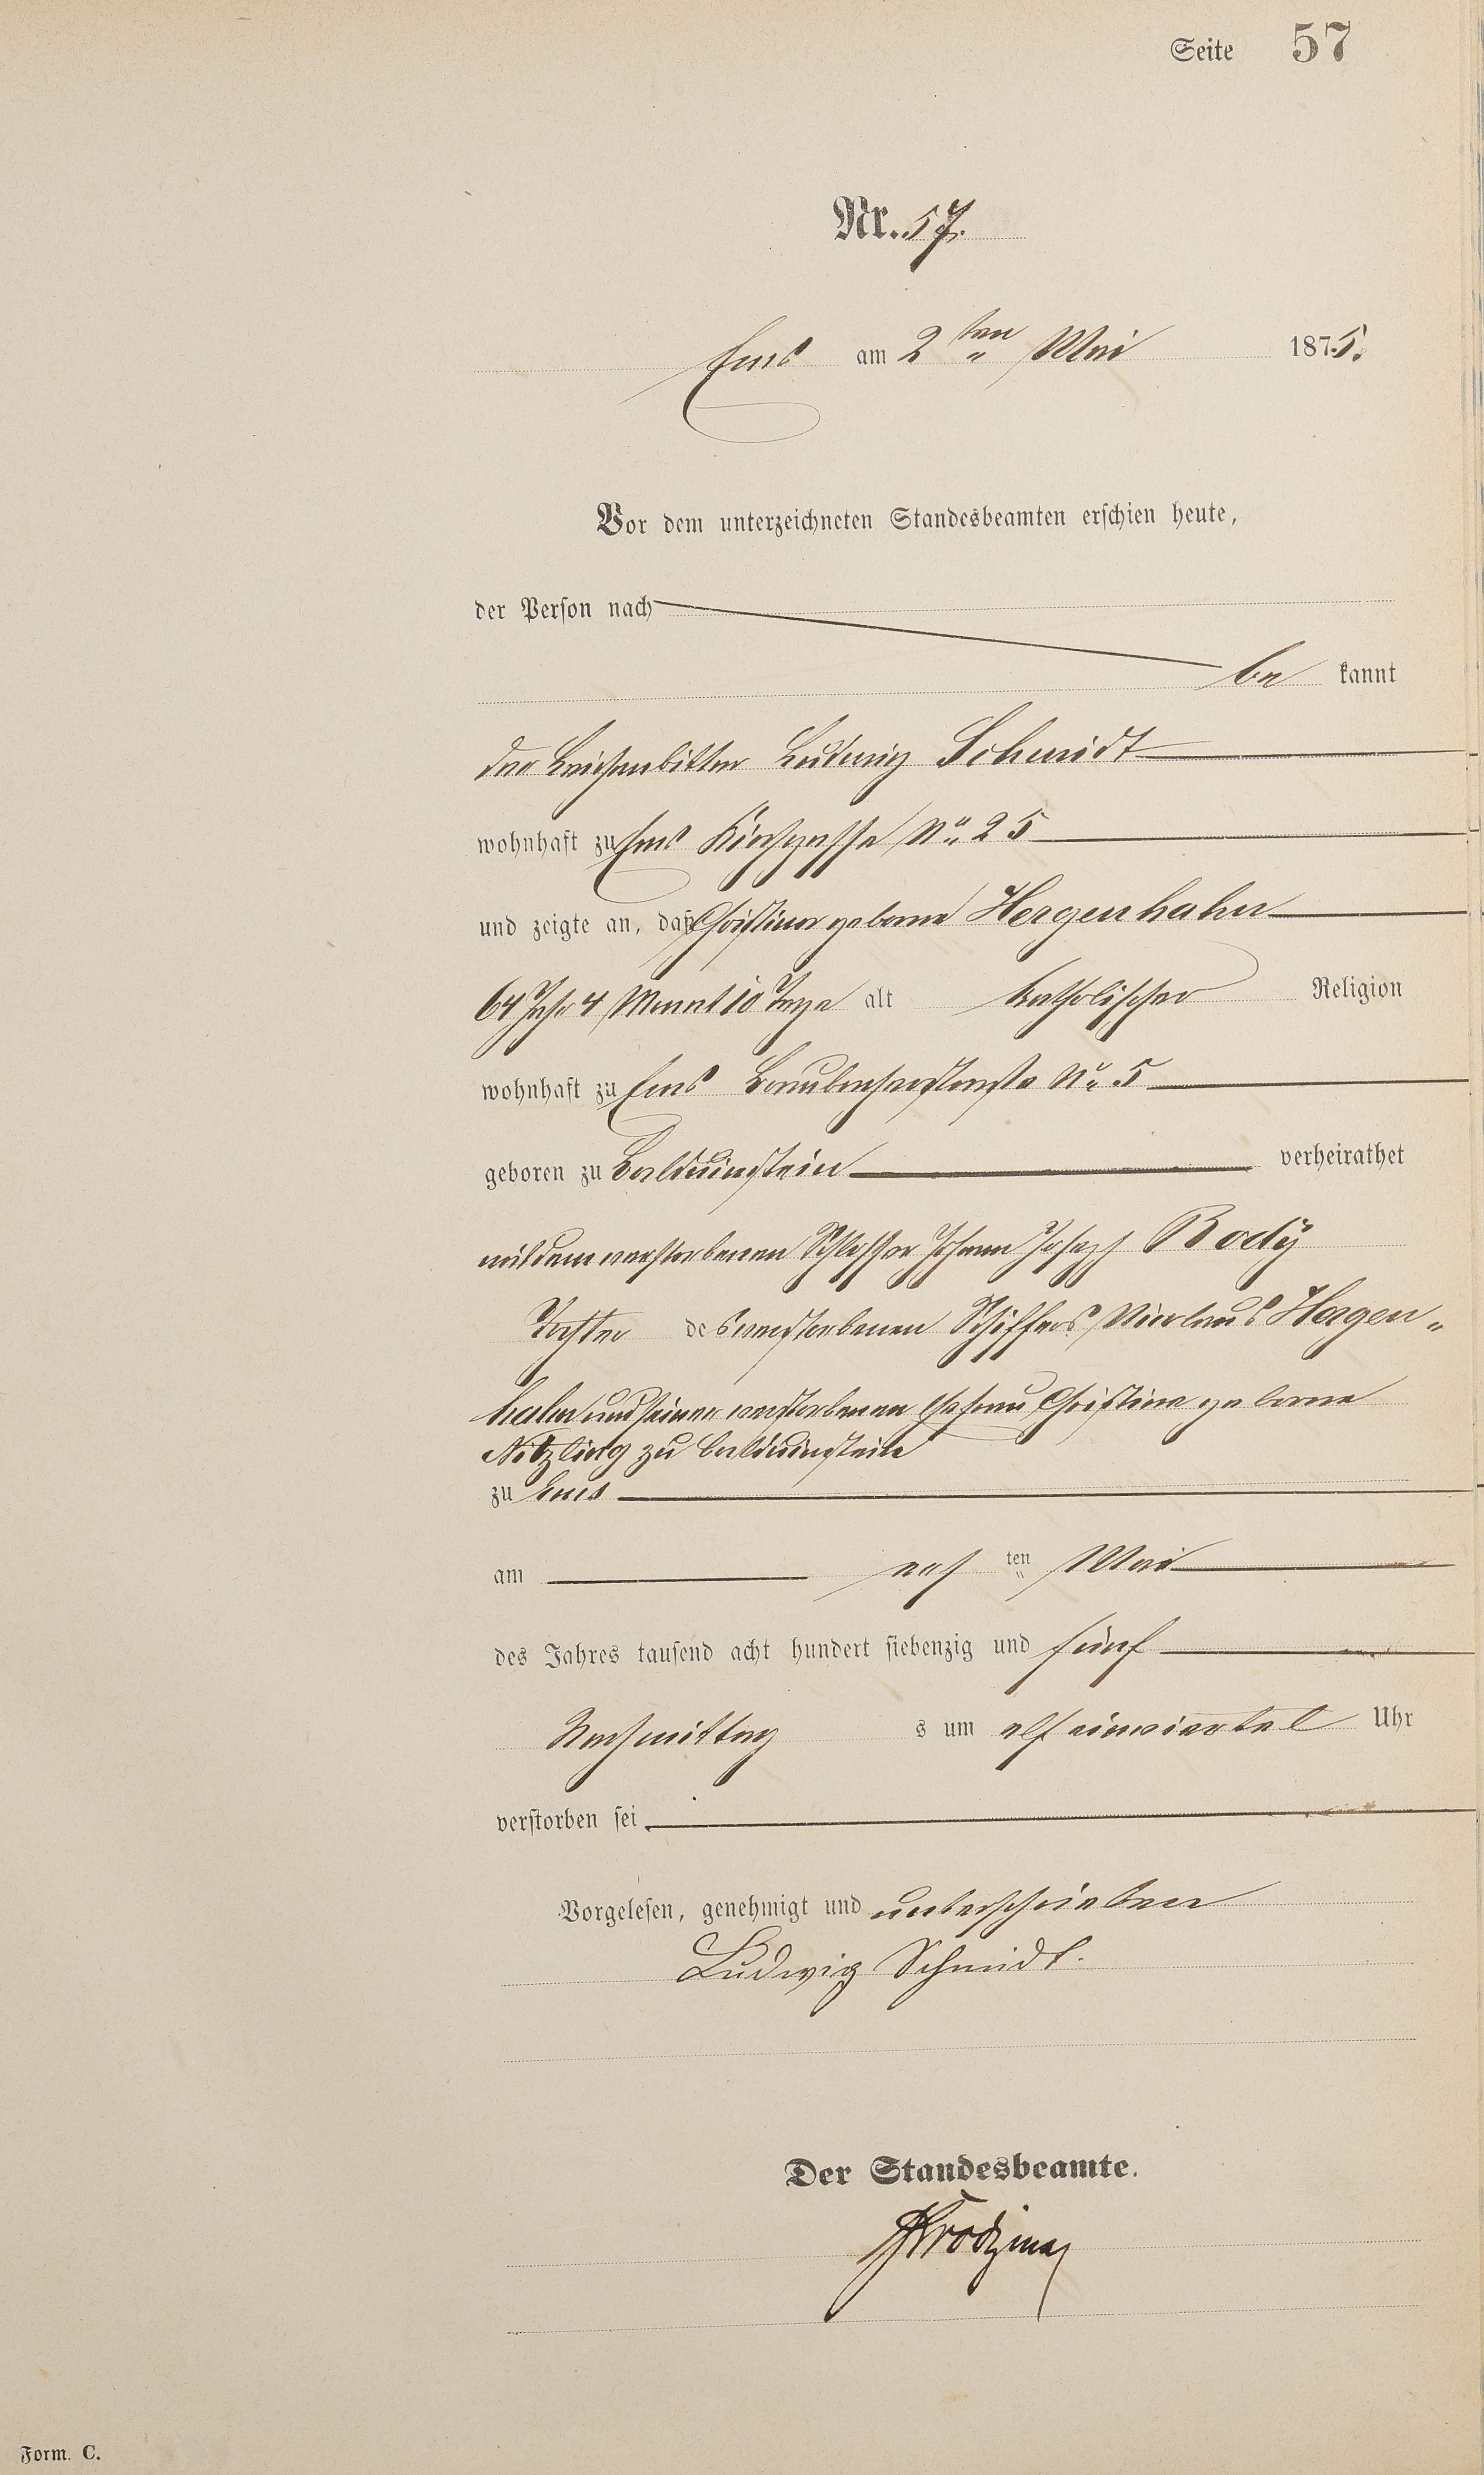 Seite 57
Nr. 57.
Ems am 2 ten Mai 1875.
Vor dem unterzeichneten Standesbeamten erschien heute,
der Person nach
be kannt
der Leichenbitter Ludwig Schmidt
wohnhaft zu Ems Kirchgasse No. 25
und zeigte an, daß Christine geborne Hergenhahn
64 Jahr 4 Monat 10 Tage alt katholischer Religion
wohnhaft zu Ems Braubacherstraße No. 5
geboren zu Balduinstein verheirathet
mit dem verstorbenen Schlosser Johann Joseph Body
Tochter des verstorbenen Schiffers Nicolaus Hergen„
hahn und seiner verstorbenen Ehefrau Christine geborne
zu Balduinstein
zu Ems
am ten Mai
des Jahres tausend acht hundert siebenzig und fünf
Nachmittag s um elf einviertel Uhr
verstorben sei
Vorgelesen, genehmigt und unterschrieben
Ludwig Schmidt.
Der Standesbeamte.
Form. C.